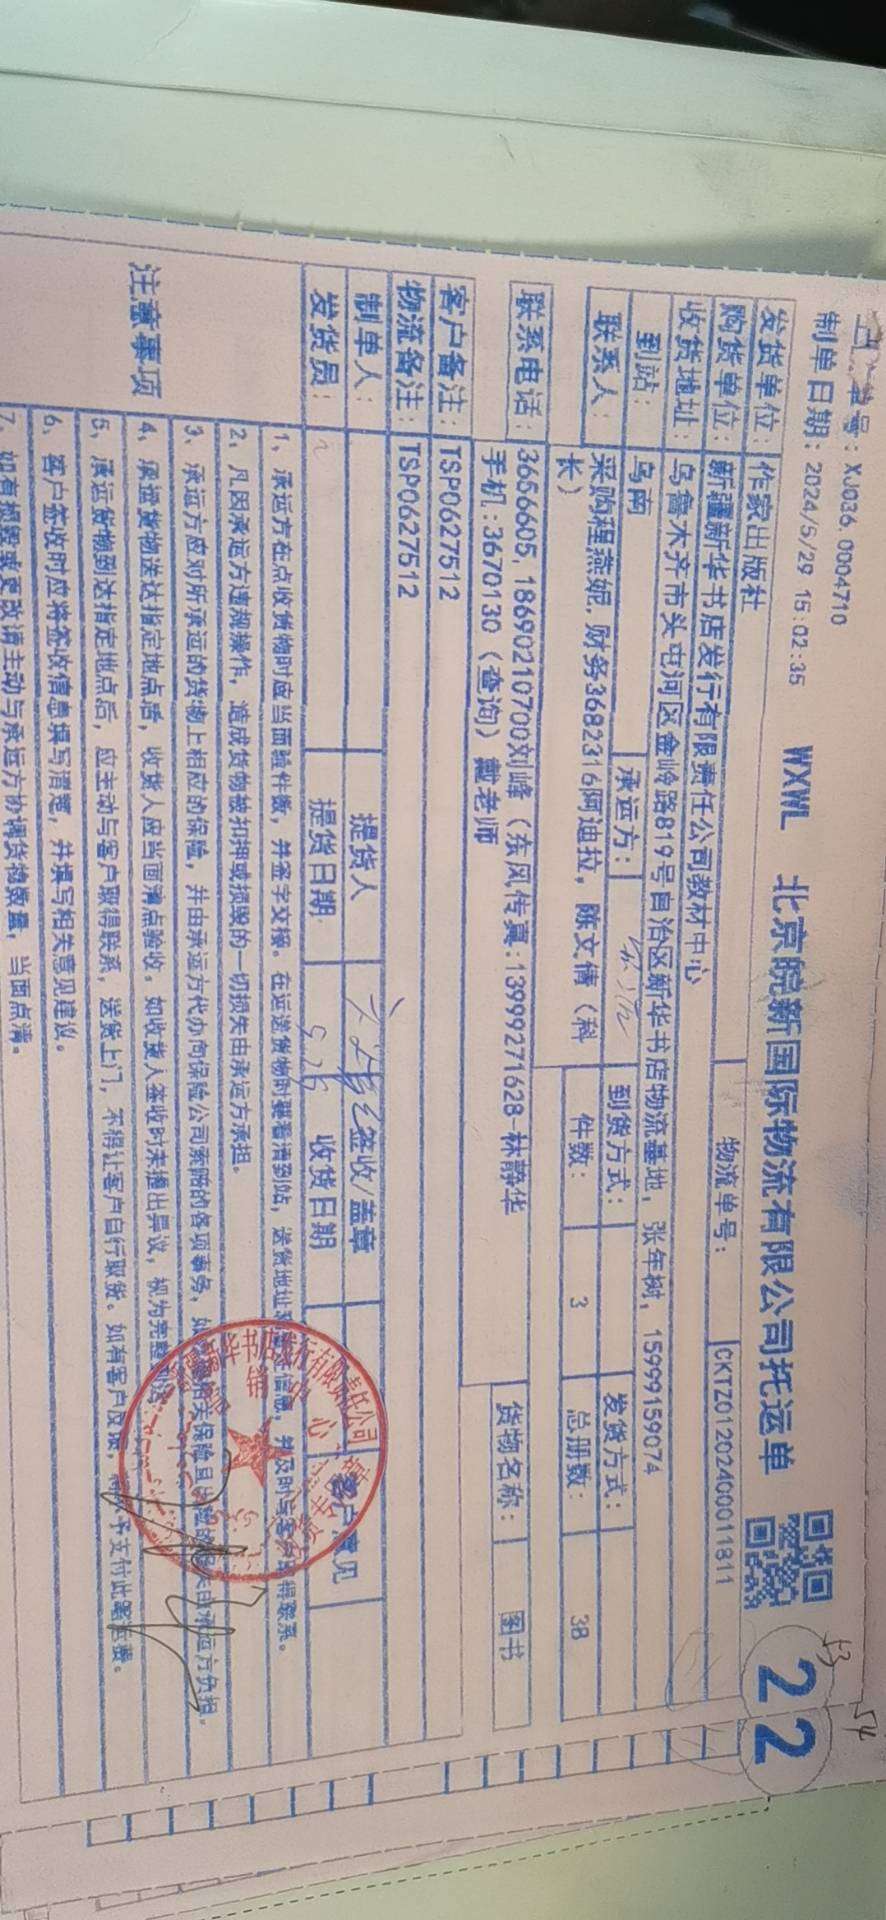 单号：XJ036.0004710
制单日期：2024/5/29 15:02:35 WXWL 北京皖新国际物流有限公司托运单
22
53
54
发货单位：作家出版社
物流单号：CKTZ01202400011811
购货单位：新疆新华书店发行有限责任公司教材中心
收货地址：乌鲁木齐市头屯河区金岭路819号自治区新华书店物流基地，张年树，15999159074
到站：乌南 承运方： 到货方式： 发货方式：
联系人：采购程燕妮，财务3682316阿迪拉，陈文倩（科长）
件数：3 总册数：38
联系电话：3656605，18690210700刘峰（东风传真：13999271628-林静华手机：3670130（查询）戴老师
货物名称：图书
客户备注：TSP0627512
物流备注：TSP0627512
制单人： 提货人 签收/盖章 客户意见
发货员： 提货日期 收货日期
注意事项
1、承运方在点收货物时应当面验件数，并签字交接。在运送货物时要看清到站，送货地址
2、凡因承运方违规操作，造成货物被扣押或损毁的一切损失由承运方承担。
3、承运方应对所承运的货物上相应的保险，并由承运方代办向保险公司索赔的各项事务，
4、承担货物送达指定地点后，收货人应当面清点验收，如收货人签收时未提出异议，视为完整
5、承运货物到达指定地点后，应主动与客户取得联系，送货上门，不得让客户自行取货。如有客户反馈，
6、客户签收时应将签收信息填写清楚，并填写相关意见建议。
7、如有损毁或更改请主动与承运方协调货物数量，当面点清。